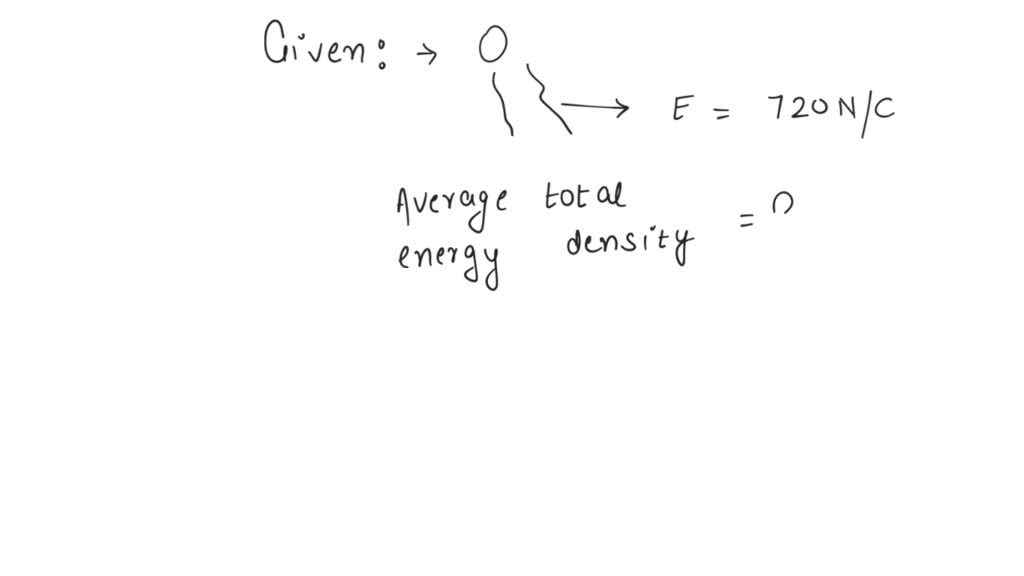 Given: →
E = 720 N/C
Average total
energy density =